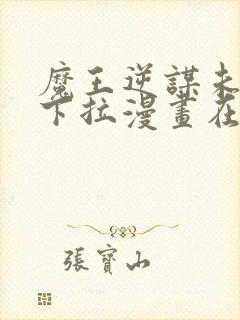 魔王逆謀未
下拉漫畫在
張寶山